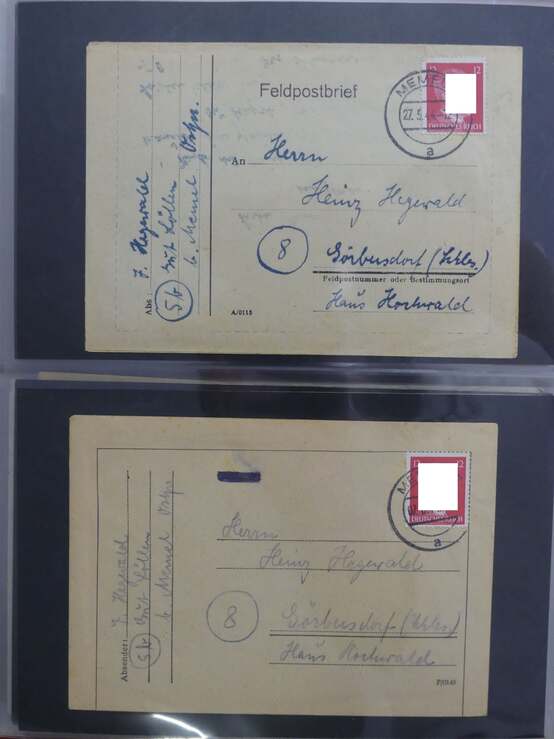 Feldpostbrief
12 12
DEUTSCHES REICH
MEME
27.5.
a
An Herrn
Heinz Hegewald
8 Görbersdorf (Schles.)
Feldpostnummer oder Bestimmungsort
Haus Hochwald
Abs.: F. Hegewald
5b Gut Göllen
b. Memel Ostpr.
A/0115
12 12
DEUTSCHES REICH
ME
a
Herrn
Heinz Hegewald
8 Görbersdorf (Schles.)
Haus Hochwald
Absender: F. Hegewald
5b Gut Göllen
b. Memel Ostpr.